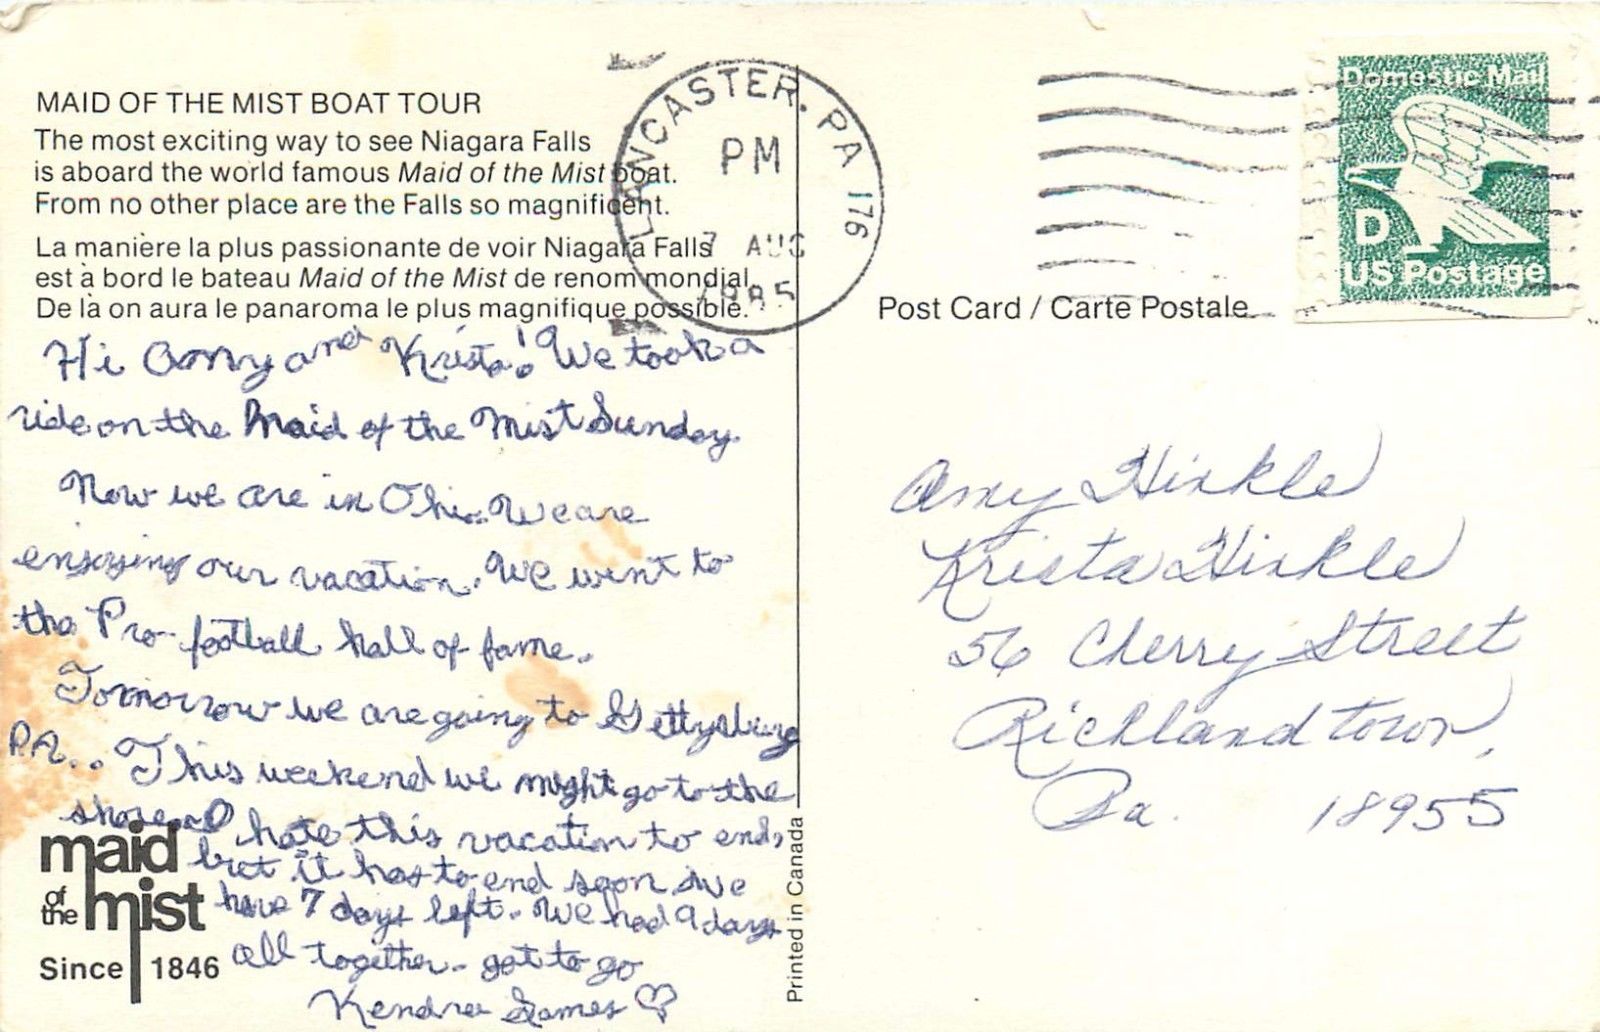 MAID OF THE MIST BOAT TOUR
The most exciting way to see Niagara Falls
is aboard the world famous Maid of the Mist boat.
From no other place are the Falls so magnificent.
La manière la plus passionante de voir Niagara Falls
est à bord le bateau Maid of the Mist de renom mondial.
De là on aura le panaroma le plus magnifique possible.
Hi Amy and Krista! We took a
ride on the Maid of the Mist Sunday.
Now we are in Ohio. We are
enjoying our vacation. We went to
the Pro-football hall of fame.
Tomorrow we are going to Gettysburg
PA... This weekend we might go to the
shore. I hate this vacation to end,
but it has to end soon. We
have 7 days left. We had 9 days
all together. got to go
Kendra James
maid
of the mist
Since 1846
Printed in Canada
LANCASTER, PA 176
PM
7 AUG
1985
Domestic Mail
D
US Postage
Post Card / Carte Postale
Amy Hinkle
Krista Hinkle
56 Cherry Street
Richlandtown,
Pa. 18955